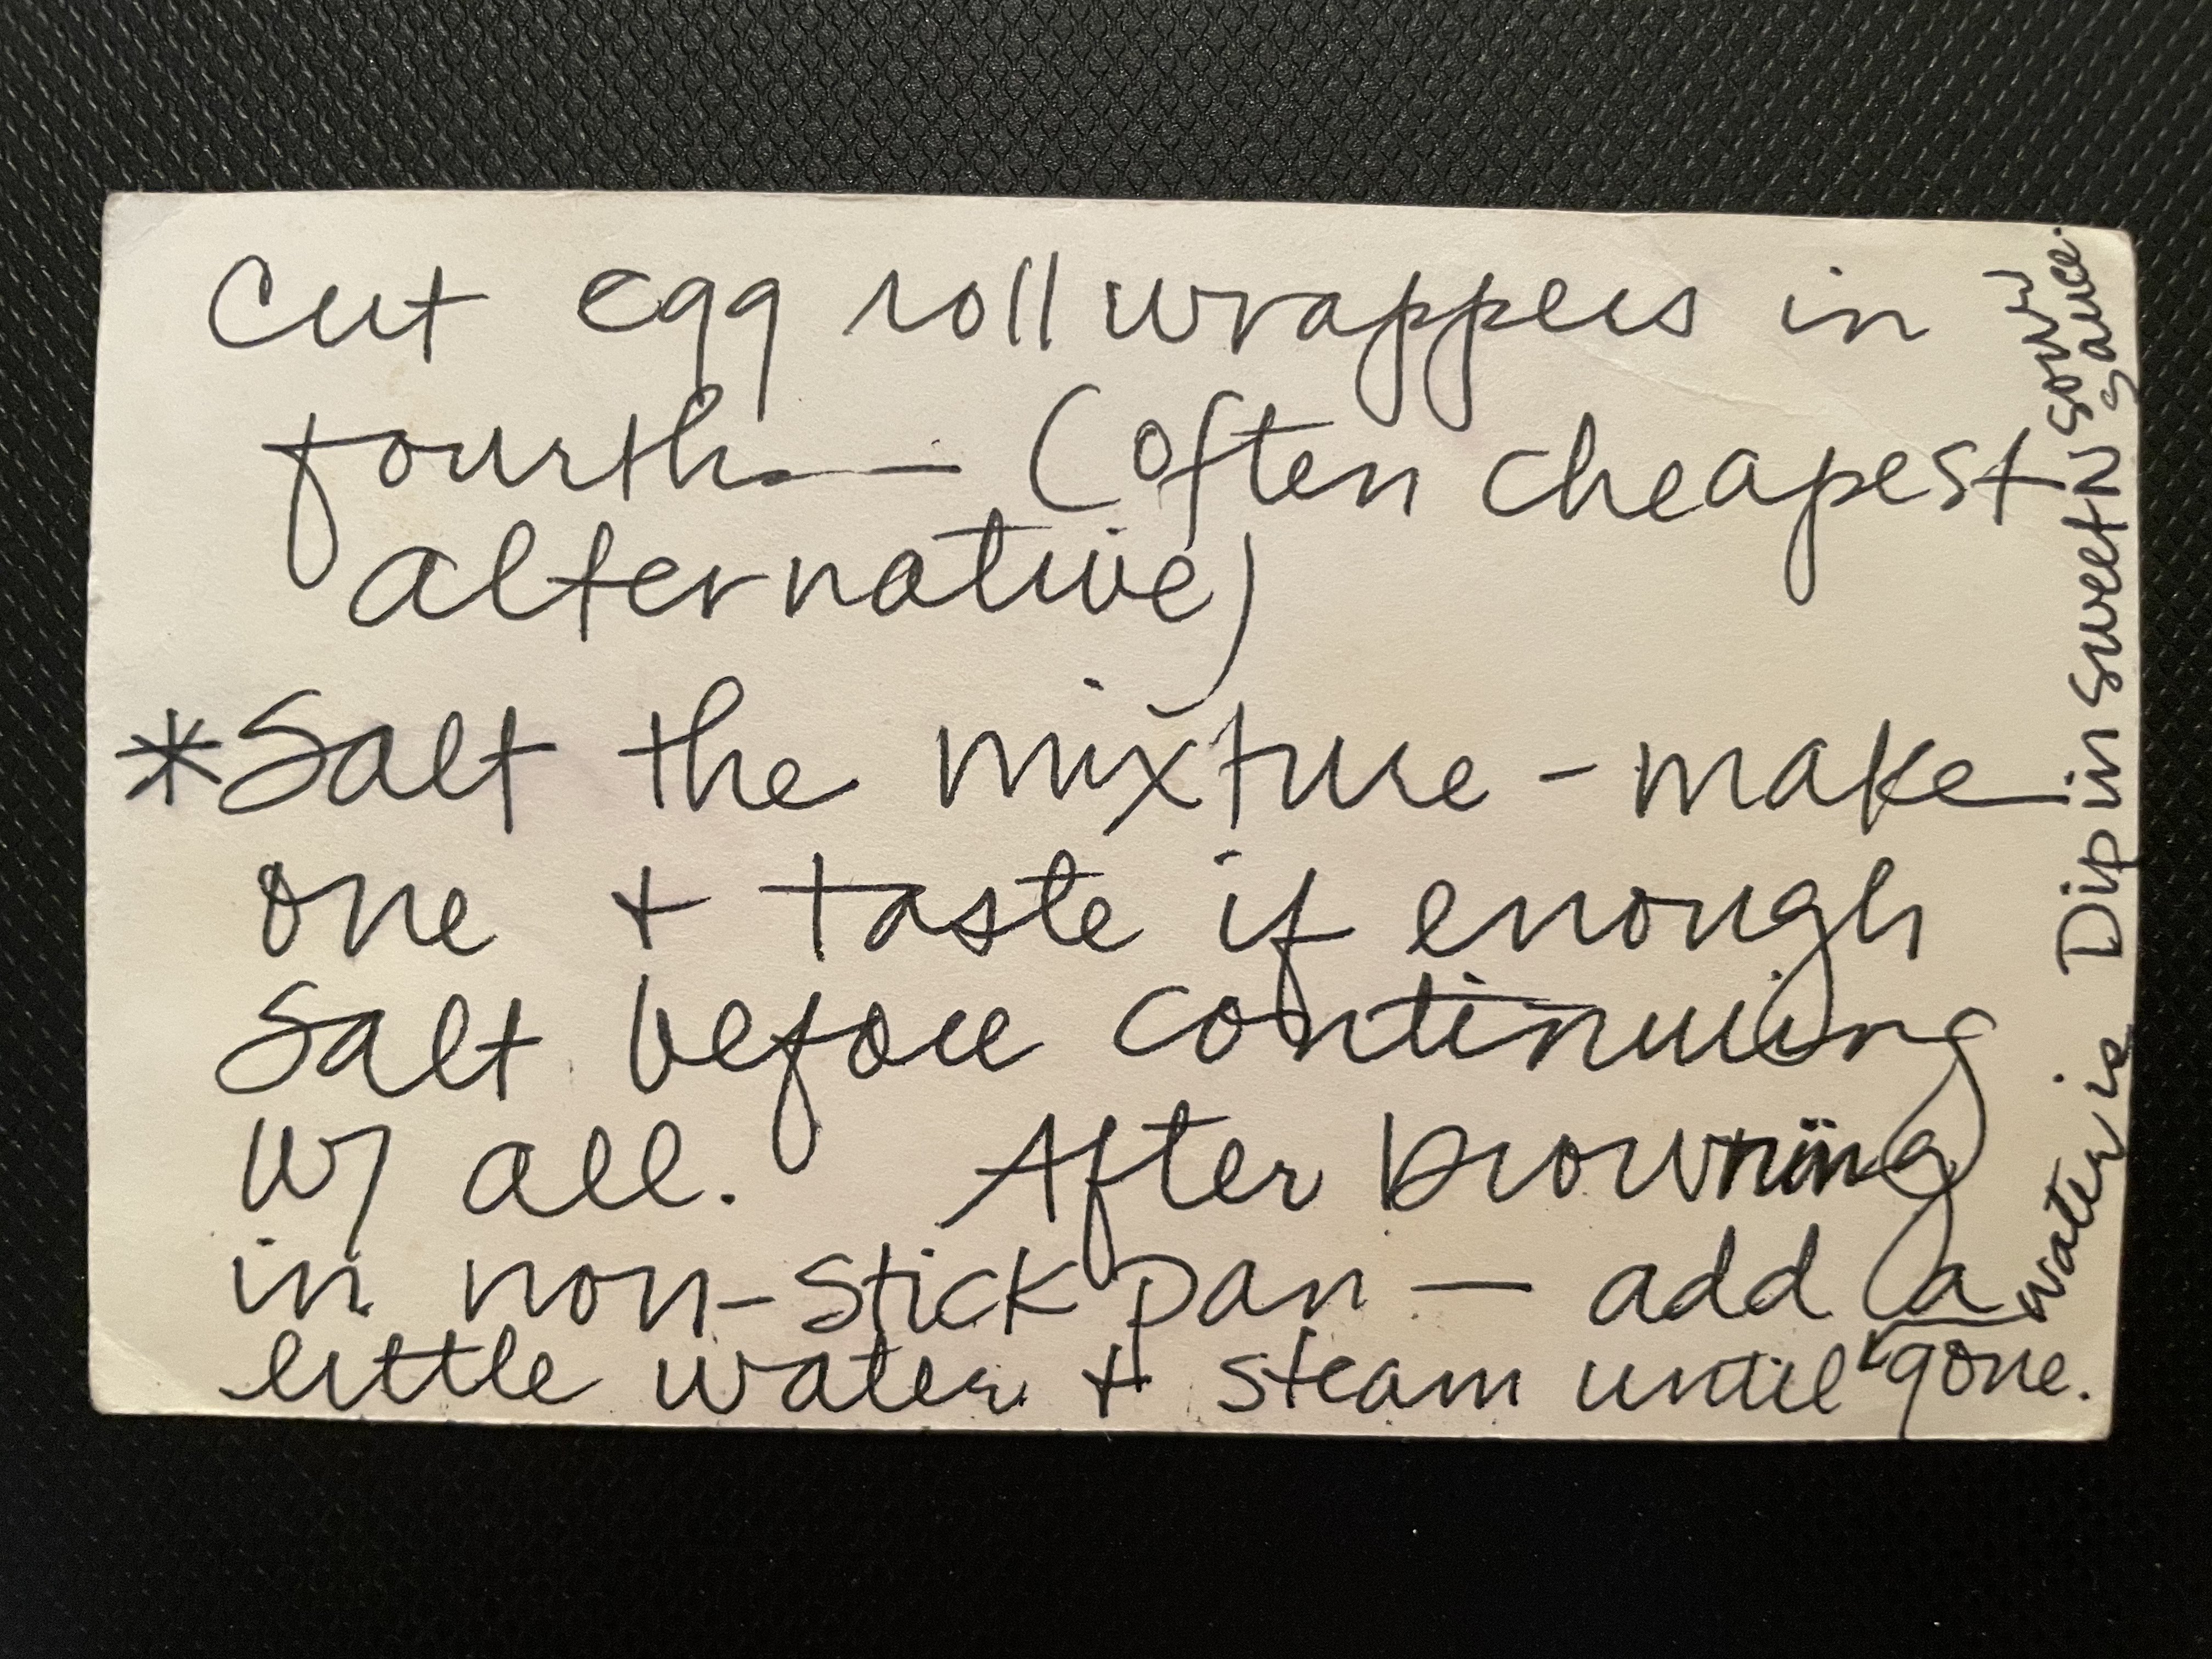 Cut egg roll wrappers in
fourths — (Often cheapest
alternative)
*Salt the mixture - make
one + taste if enough
salt before continuing
w/ all. After browning
in non-stick pan — add a
little water + steam until gone.
water is
Dip in sweet N sour
sauce.